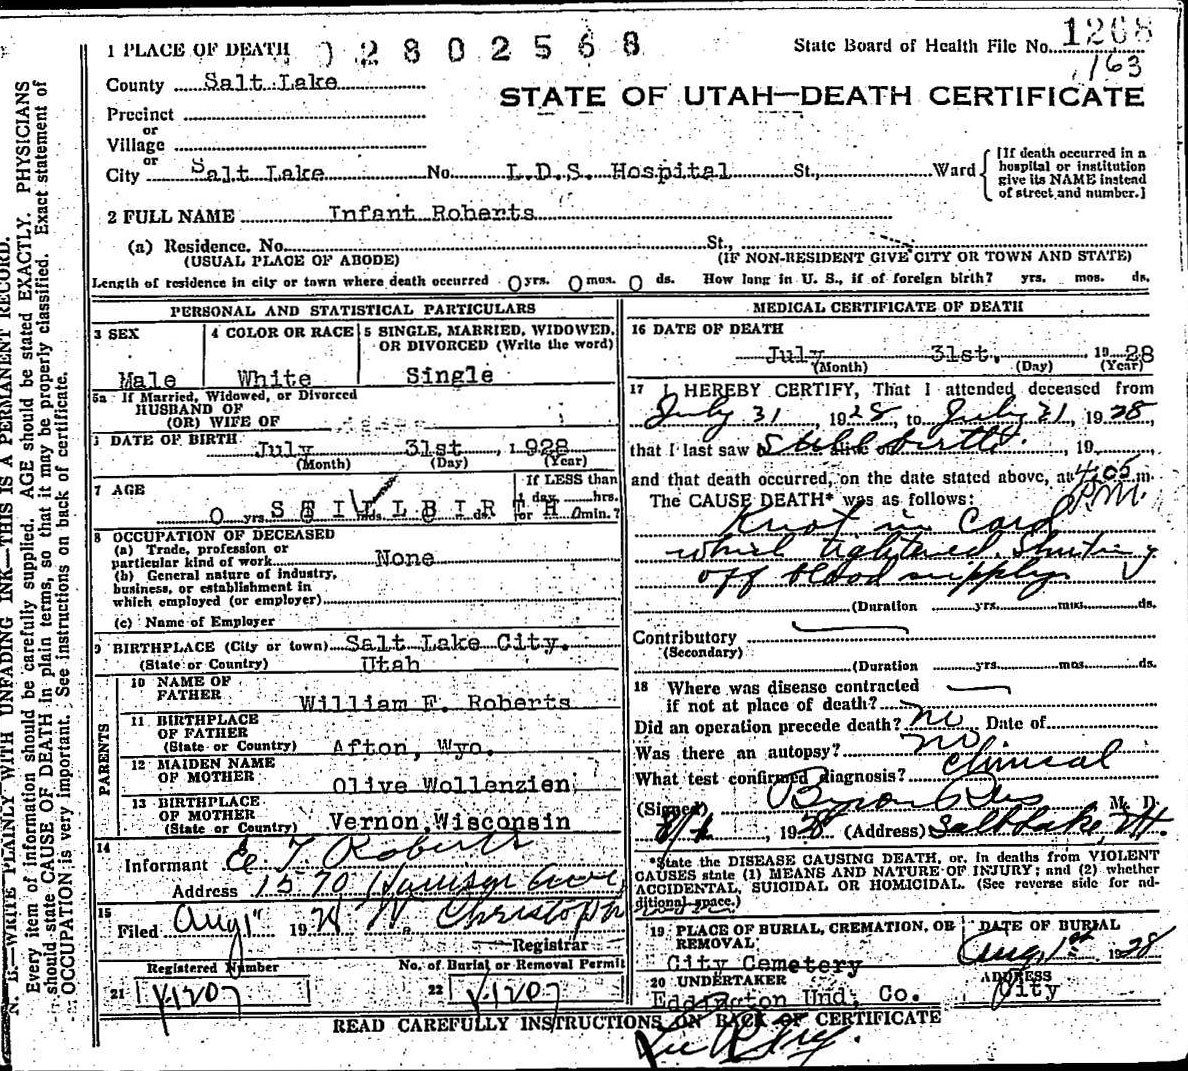 1 PLACE OF DEATH 02802568
State Board of Health File No. 1208
163
County Salt Lake
STATE OF UTAH—DEATH CERTIFICATE
Precinct
or
Village
or
City Salt Lake No. L.D.S. Hospital St., Ward
[If death occurred in a
hospital or institution
give its NAME instead
of street and number.]
2 FULL NAME Infant Roberts
(a) Residence. No. St.,
(USUAL PLACE OF ABODE) (IF NON-RESIDENT GIVE CITY OR TOWN AND STATE)
Length of residence in city or town where death occurred 0 yrs. 0 mos. 0 ds. How long in U. S., if of foreign birth? yrs. mos. ds.
PERSONAL AND STATISTICAL PARTICULARS
3 SEX
Male
4 COLOR OR RACE
White
5 SINGLE, MARRIED, WIDOWED,
OR DIVORCED (Write the word)
Single
5a If Married, Widowed, or Divorced
HUSBAND OF
(OR) WIFE OF
DATE OF BIRTH
July 31st, 1928
(Month) (Day) (Year)
7 AGE
If LESS than
1 day hrs.
0 yrs. STILLBIRTH or 0 min.?
8 OCCUPATION OF DECEASED
(a) Trade, profession or
particular kind of work None
(b) General nature of industry,
business, or establishment in
which employed (or employer)
(c) Name of Employer
9 BIRTHPLACE (City or town) Salt Lake City.
(State or Country) Utah
PARENTS
10 NAME OF
FATHER William F. Roberts
11 BIRTHPLACE
OF FATHER
(State or Country) Afton, Wyo.
12 MAIDEN NAME
OF MOTHER Olive Wollenzien
13 BIRTHPLACE
OF MOTHER
(State or Country) Vernon, Wisconsin
14
Informant E. T. Roberts
Address 1570 Harrison Ave
15
Filed Aug 1" 19 Christoph
Registrar
Registered Number
21 1207
No. of Burial or Removal Permit
22 1207
MEDICAL CERTIFICATE OF DEATH
16 DATE OF DEATH
July 31st. 1928
(Month) (Day) (Year)
17 I HEREBY CERTIFY, That I attended deceased from
July 31, 1928, to July 31, 1928,
that I last saw Stillbirth. alive on , 19
and that death occurred, on the date stated above, at 4:05 m.
P.M.
The CAUSE DEATH* was as follows:
Knot in Cord
which tightened. Shutting
off blood supply
(Duration yrs. mos. ds.
Contributory
(Secondary)
(Duration yrs. mos. ds.
18 Where was disease contracted
if not at place of death?
Did an operation precede death? no Date of
Was there an autopsy? no
What test confirmed diagnosis? clinical
(Signed) Byron Rees M. D.
8/1, 1928 (Address) Salt Lake, Ut.
*State the DISEASE CAUSING DEATH, or, in deaths from VIOLENT
CAUSES state (1) MEANS AND NATURE OF INJURY; and (2) whether
ACCIDENTAL, SUICIDAL OR HOMICIDAL. (See reverse side for ad-
ditional space.)
19 PLACE OF BURIAL, CREMATION, OR
REMOVAL
City Cemetery
DATE OF BURIAL
Aug. 1st 1928
20 UNDERTAKER
Eddington Und. Co.
ADDRESS
City
READ CAREFULLY INSTRUCTIONS ON BACK OF CERTIFICATE
N. B.—WRITE PLAINLY WITH UNFADING INK—THIS IS A PERMANENT RECORD.
Every item of information should be carefully supplied. AGE should be stated EXACTLY. PHYSICIANS
should state CAUSE OF DEATH in plain terms, so that it may be properly classified. Exact statement of
OCCUPATION is very important. See instructions on back of certificate.